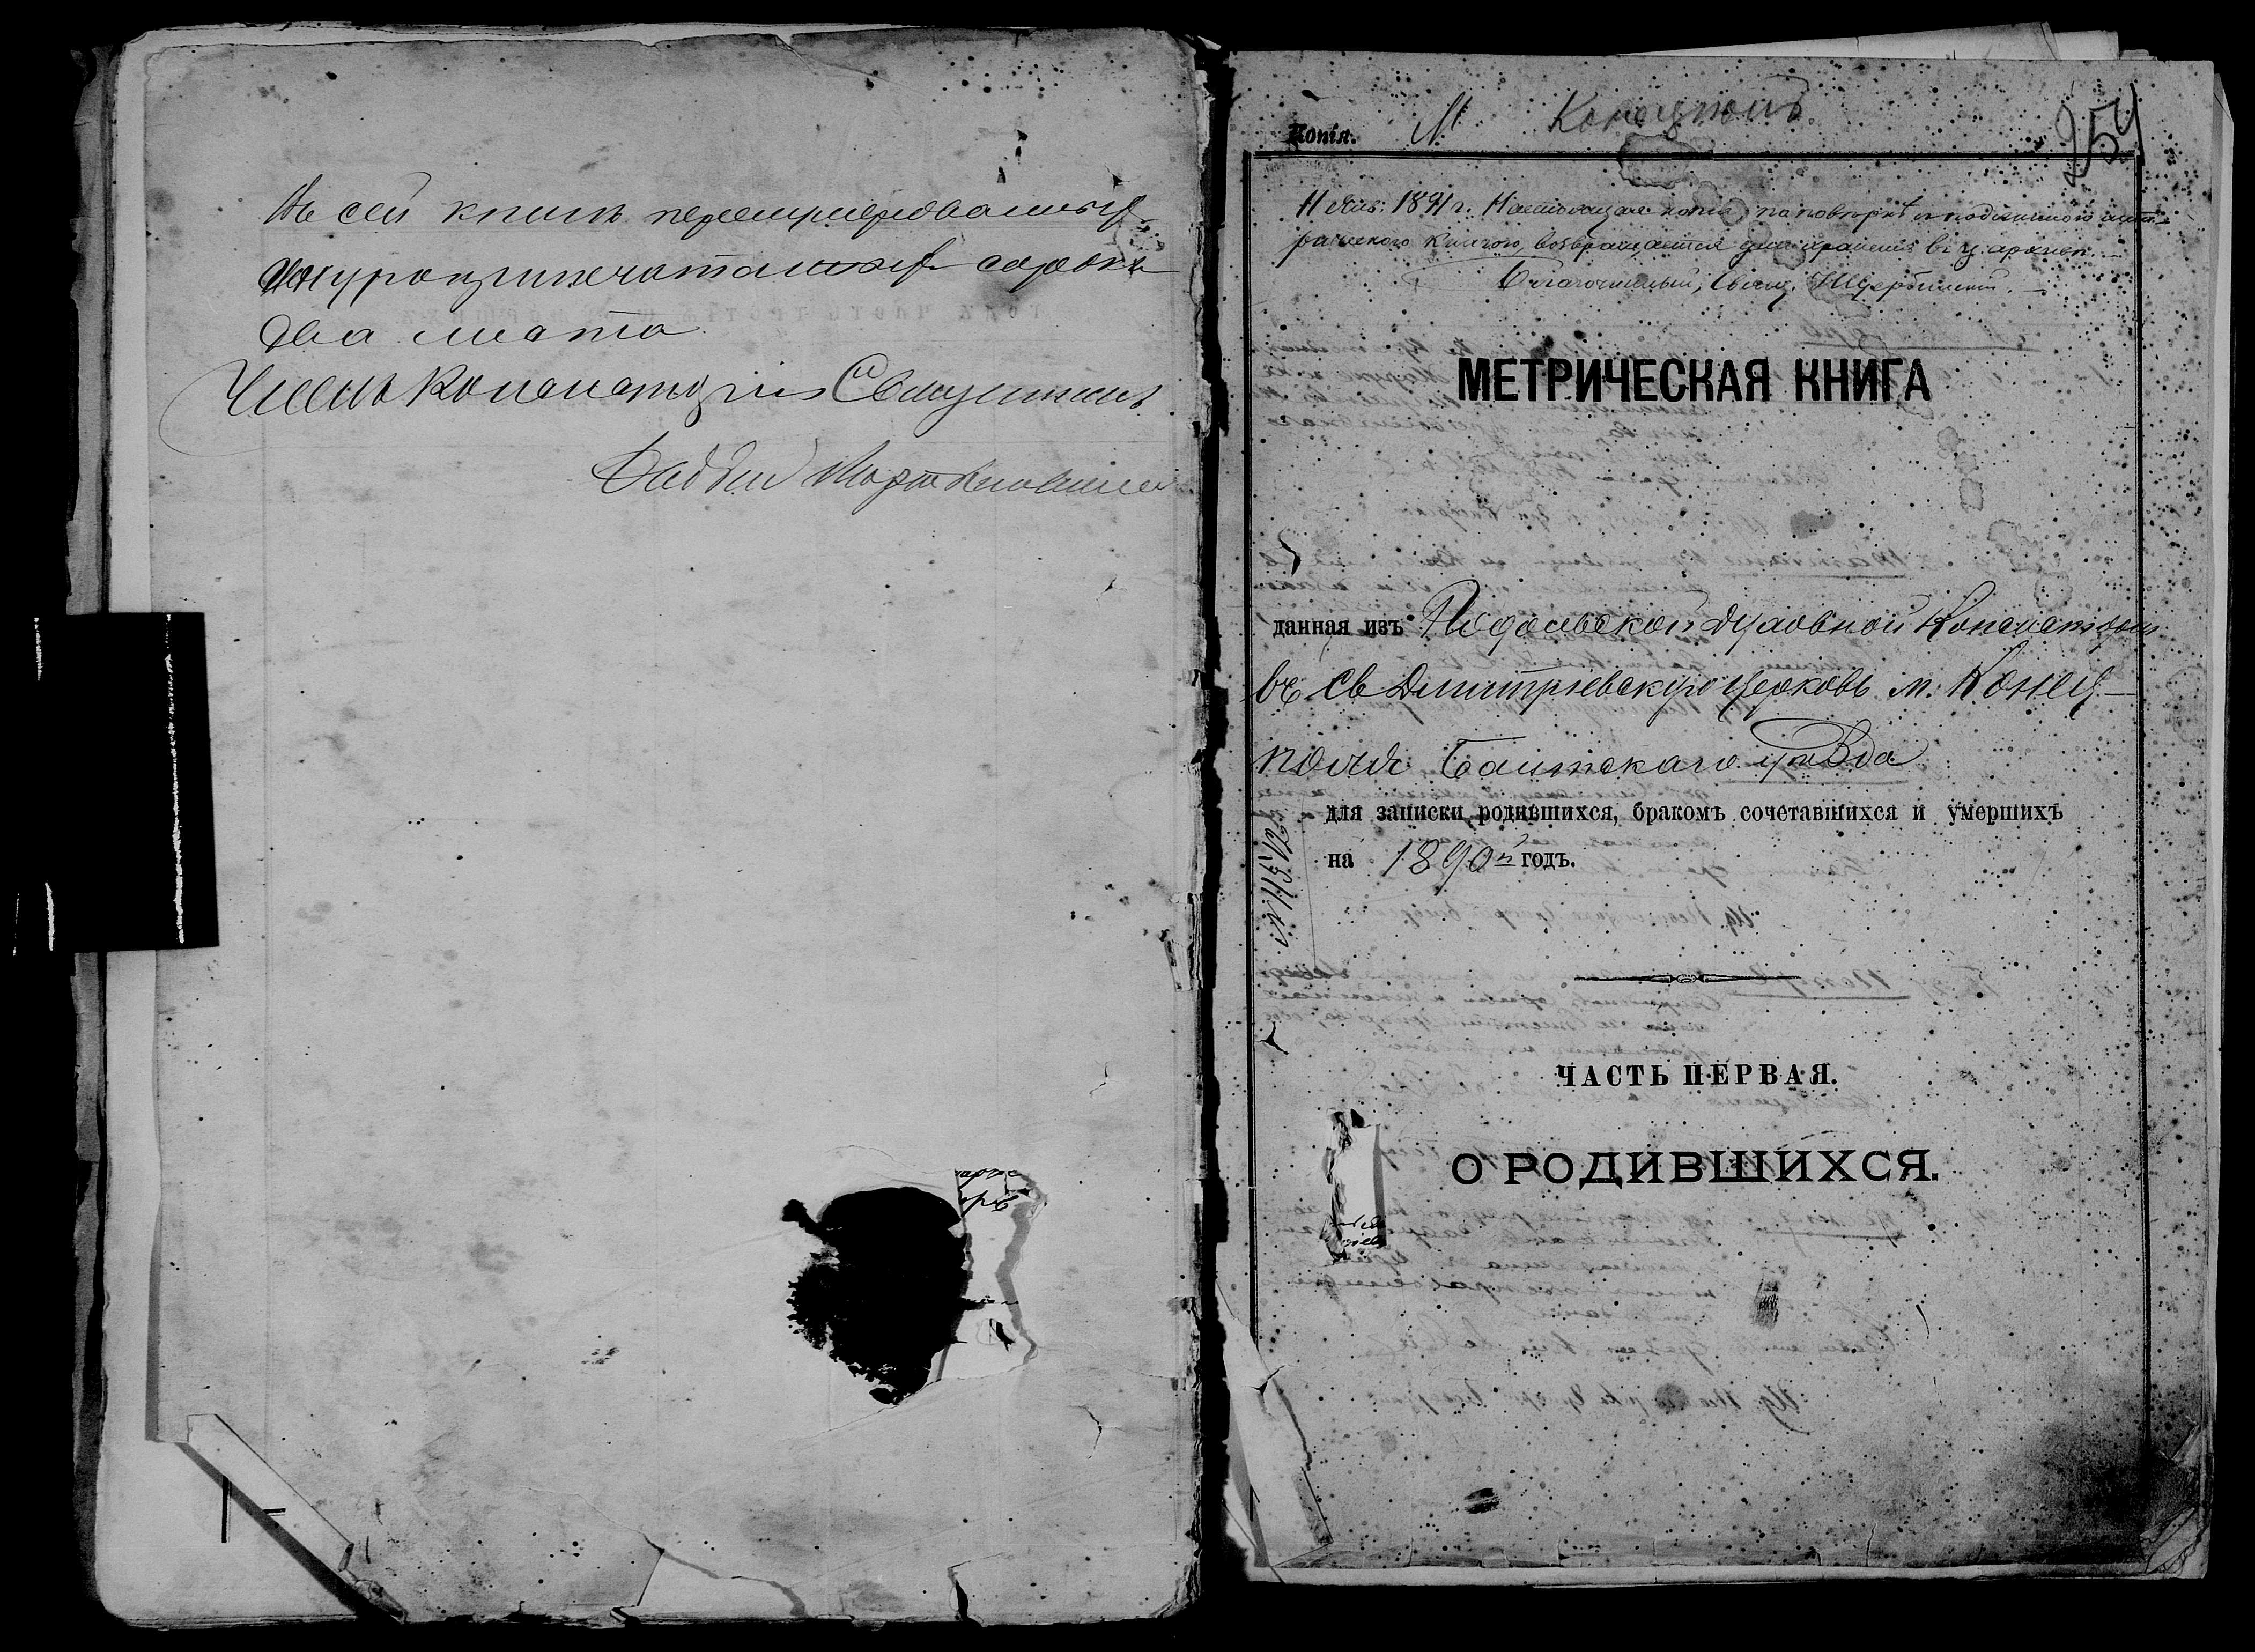 Въ сей книгѣ перенумерованныхъ
шнуроприпечатанныхъ сорокъ
два листа
Членъ Консисторіи Свящ
Копія. М. Конецполь
254
11 1891 г. Настоящая копія, по повѣркѣ съ подлинною мет-
рическою книгою, возвращается для храненія въ ц. архивѣ.
Благочинный, Свящ.
МЕТРИЧЕСКАЯ КНИГА
данная изъ Подольской Духовной Консисторіи
въ Св Димитріевскую церковь м. Конец-
поля Балтскаго уѣзда
для записки родившихся, бракомъ сочетавшихся и умершихъ
на 1890й годъ.
ЧАСТЬ ПЕРВАЯ.
О РОДИВШИХСЯ.